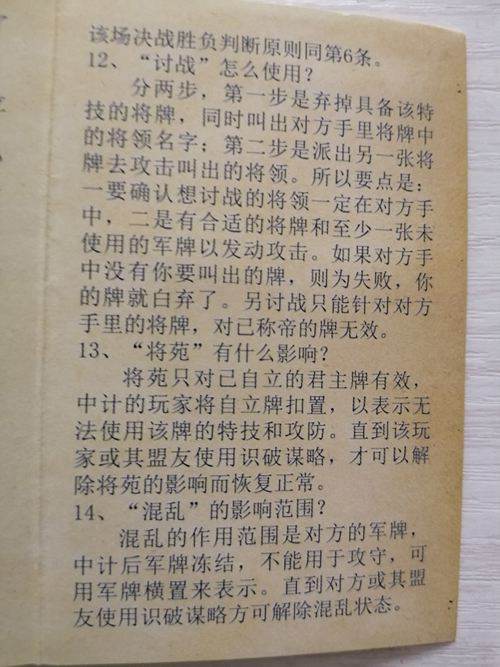 该场决战胜负判断原则同第6条。
12、“讨战”怎么使用？
分两步，第一步是弃掉具备该特
技的将牌，同时叫出对方手里将牌中
的将领名字；第二步是派出另一张将
牌去攻击叫出的将领。所以要点是：
一要确认想讨战的将领一定在对方手
中，二是有合适的将牌和至少一张未
使用的军牌以发动攻击。如果对方手
中没有你要叫出的牌，则为失败，你
的牌就白弃了。另讨战只能针对对方
手里的将牌，对已称帝的牌无效。
13、“将苑”有什么影响？
将苑只对已自立的君主牌有效，
中计的玩家将自立牌扣置，以表示无
法使用该牌的特技和攻防。直到该玩
家或其盟友使用识破谋略，才可以解
除将苑的影响而恢复正常。
14、“混乱”的影响范围？
混乱的作用范围是对方的军牌，
中计后军牌冻结，不能用于攻守，可
用军牌横置来表示。直到对方或其盟
友使用识破谋略方可解除混乱状态。